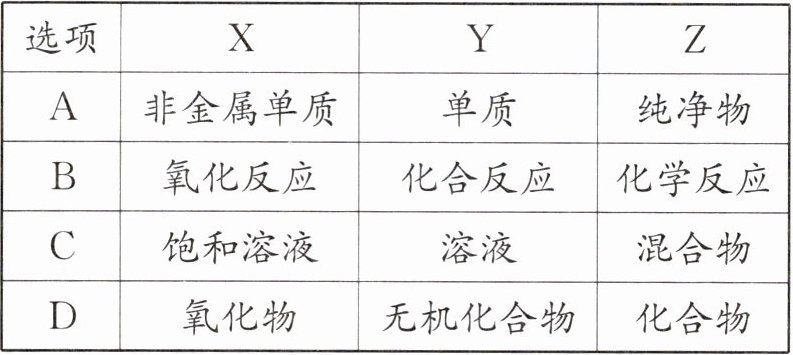 选项 X Y Z
A 非金属单质 单质 纯净物
B 氧化反应 化合反应 化学反应
C 饱和溶液 溶液 混合物
D 氧化物 无机化合物 化合物